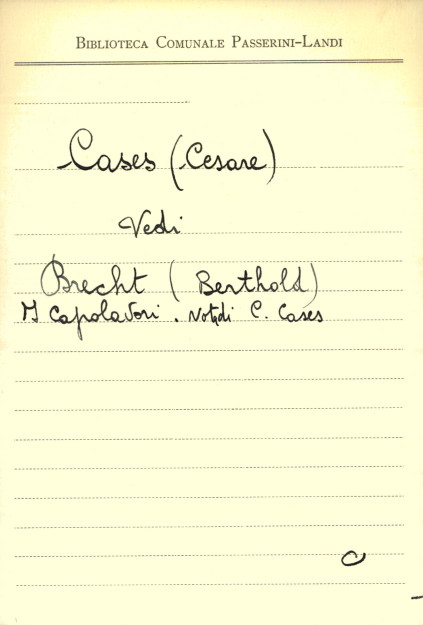 BIBLIOTECA COMUNALE PASSERINI-LANDI
Cases (Cesare)
Vedi
Brecht (Berthold)
I Capolavori. Note di C. Cases
C